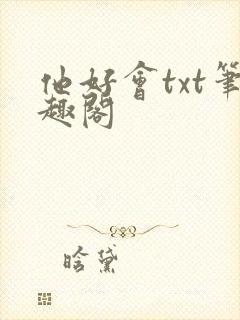 他好會txt筆
趣閣
晗黛